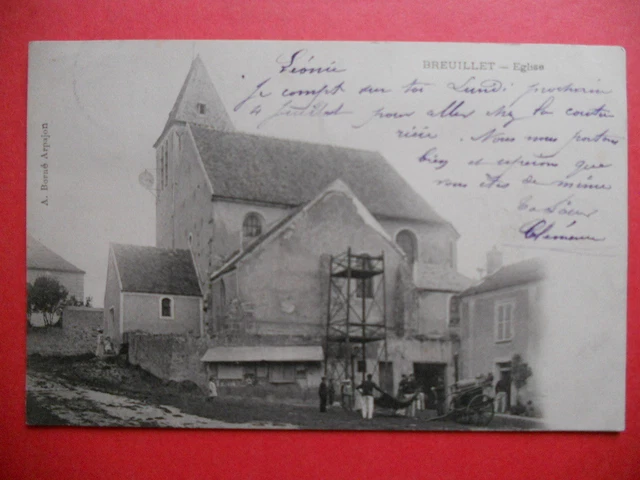 BREUILLET – Eglise
Léonie
Je compt sur toi Lundi prochain
4 juillet pour aller chez la coutu
rière. Nous nous portons
bien et espérons que
vous êtes de même
Ta sœur
Clémence
A. Borné Arpajon